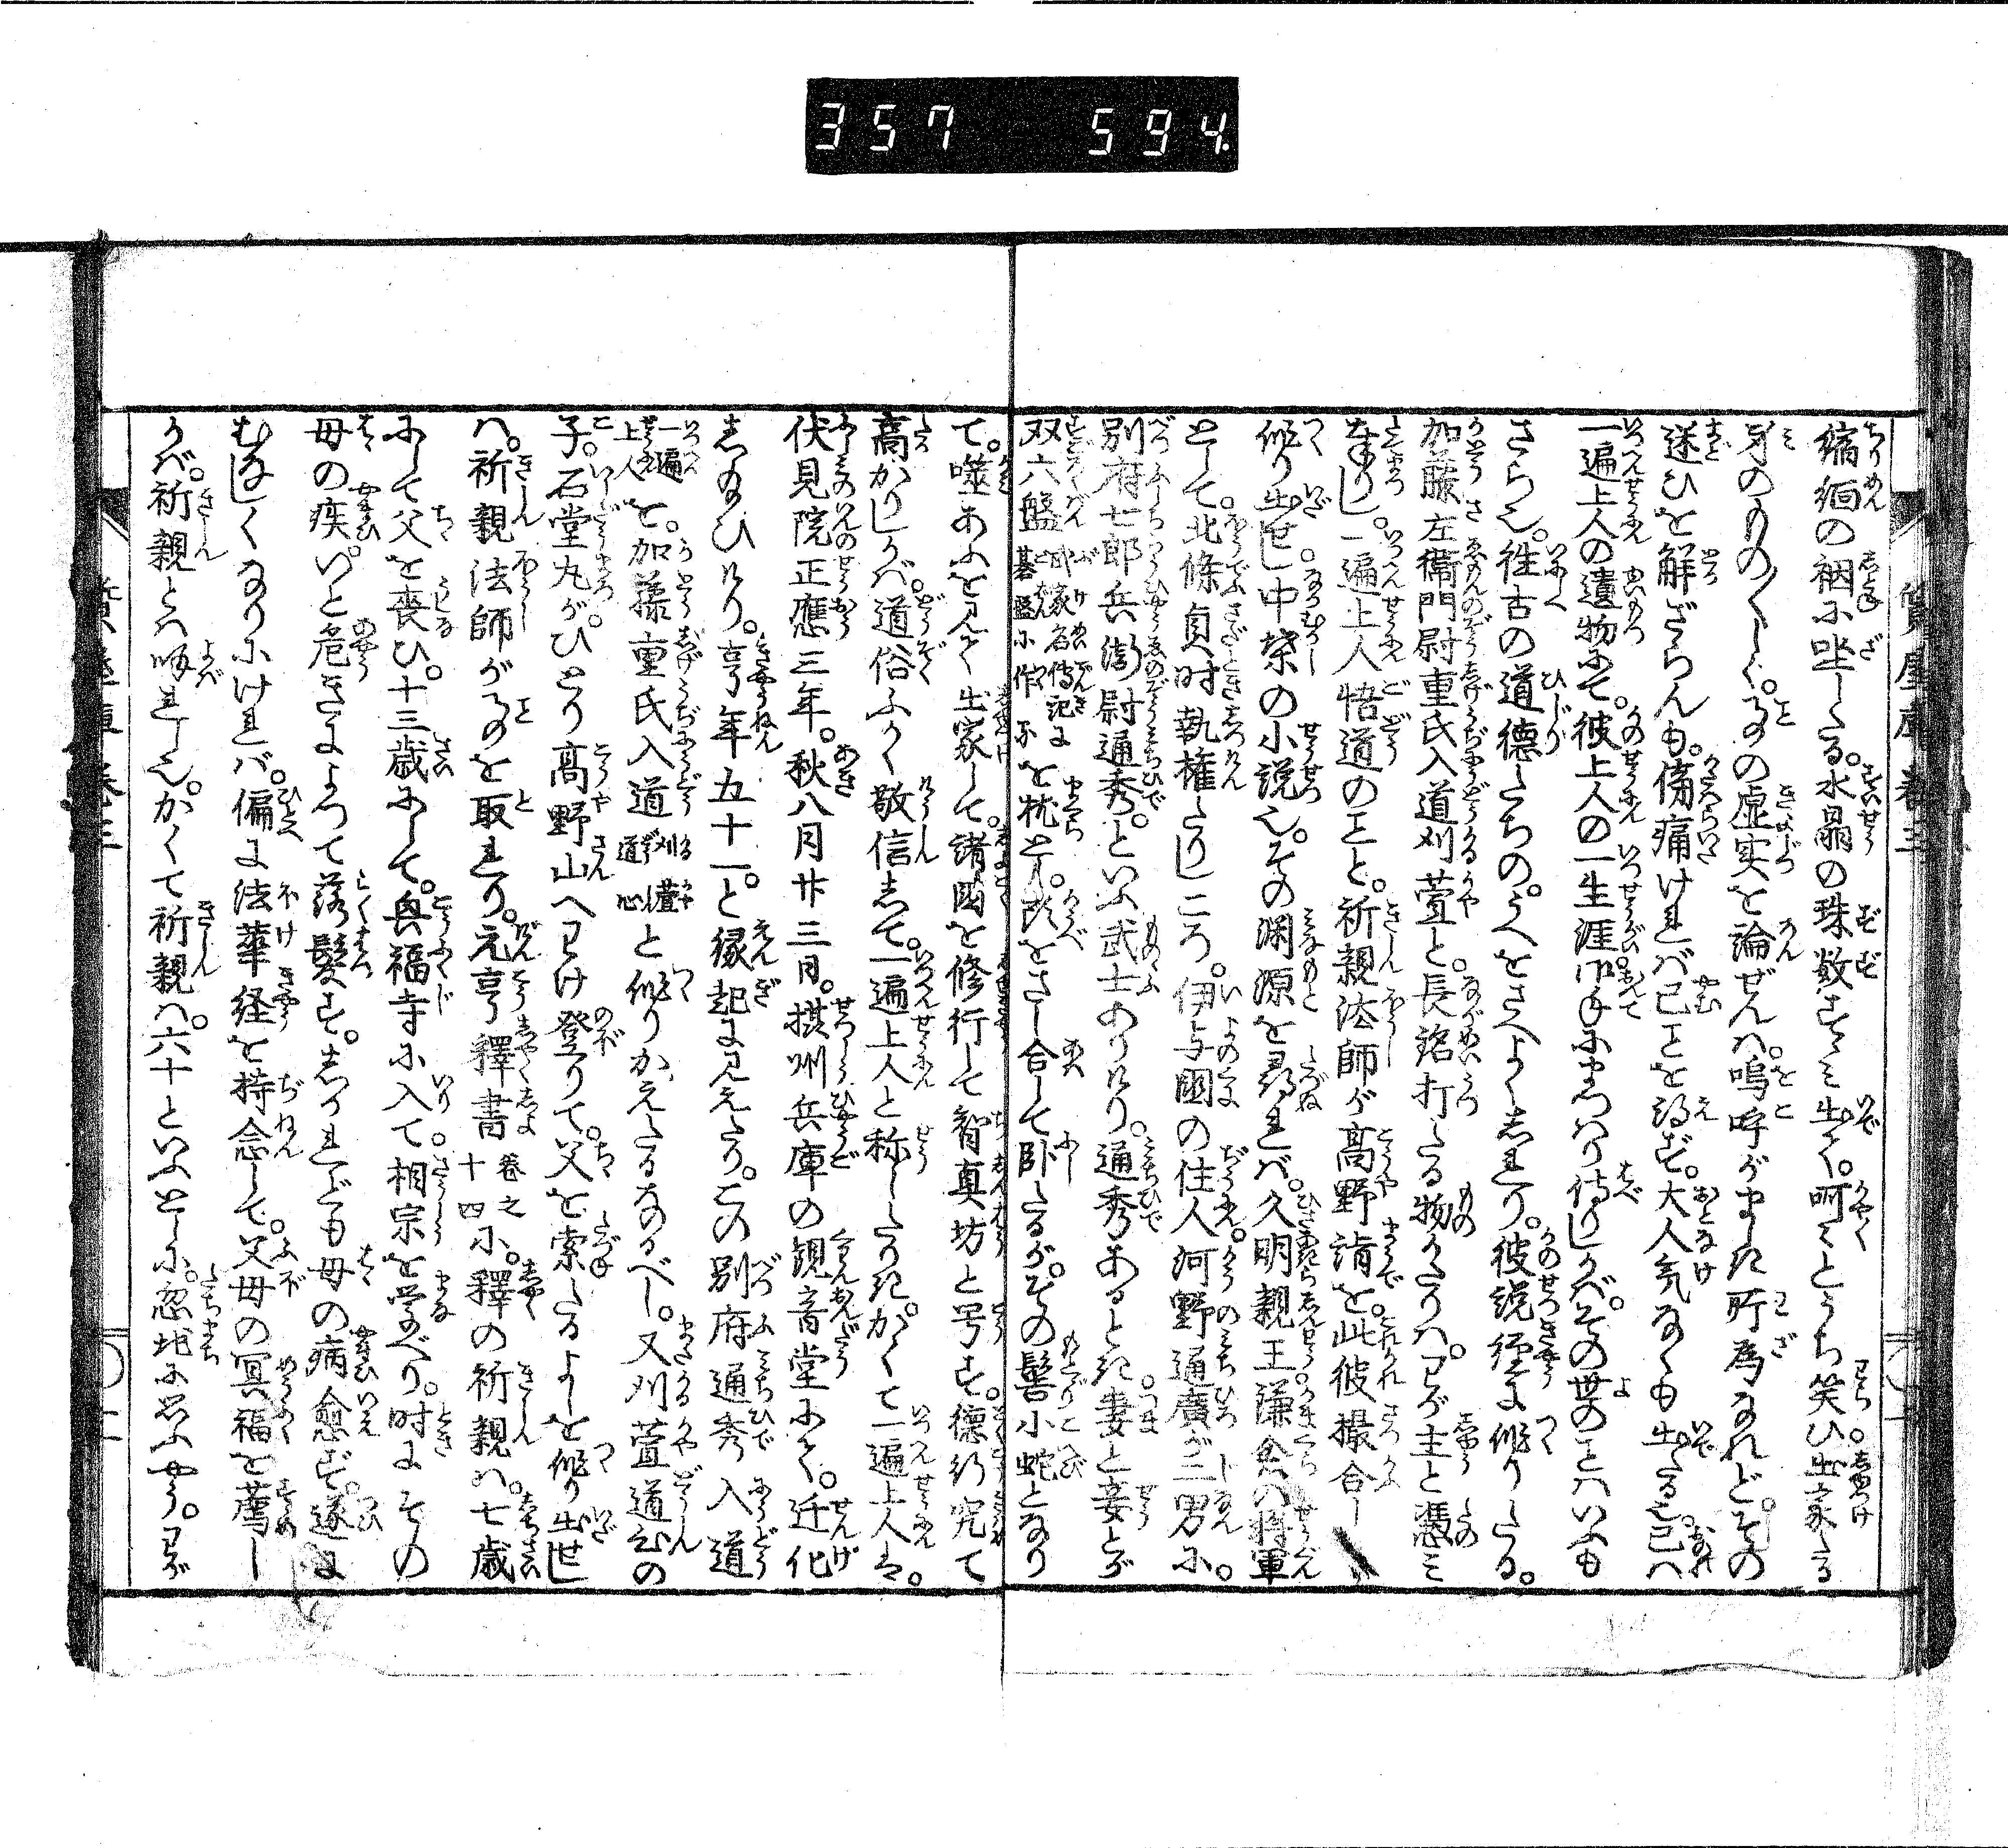 357 594.
質屋庫 巻三
縮緬の裀に坐したる。水晶の珠数すり出て。呵〻とうち笑ひ出家たる
身のものゝ〳〵しく。ことの虚実を論ぜんは。嗚呼がましき所為なれど。その
迷ひを解ざらんも。傍痛ければ已ことを得ず。大人気なくも出たる也。己は
一遍上人の遺物にて。彼上人の一生涯。巾手にまつはり侍りしかば。その世のことはいふも
さら也。往古の道徳たちの。うへをさへよくしれり。彼説経に作りたる。
加藤左衛門尉重氏入道刈萱と。長銘打たる物がたりは。わが主と憑み
まゐりし。一遍上人悟道のことゝ。祈親法師が高野詣を。此彼撮合し
作り出せし。中葉の小説也。その淵源を尋れば。久明親王。鎌倉の将軍
として。北條貞時執権たりしころ。伊与國の住人河野通廣が二男に。
別府七郎兵衛尉通秀。といふ武士ありけり。通秀あるとき。妻と妾とが
双六盤 武家名傳記に碁盤に作る を枕とし。頭をさし合して臥たるが。その髻小蛇となり
て。噬あふを見て出家して。諸國を修行して智真坊と号す。徳行究て
高かりしかば。道俗ふかく敬信して。一遍上人と称したりき。かくて一遍上人は。
伏見院正應三年。秋八月廿三日。摂州兵庫の観音堂にて。迁化
し給ひけり。享年五十一。と縁起に見えたり。この別府通秀入道
一遍上人 を。加藤重氏入道 刈萱道心 と作りかえたるなるべし。又刈萱道心の
子。石堂丸が。ひとり高野山へわけ登りて。父を索たるよしを作り出せし
は。祈親法師がことを取れり。元亨釋書 巻之十四 に。釋の祈親は。七歳
にして父を喪ひ。十三歳にして。興福寺に入て。相宗を学べり。時にその
母の疾いと危きによつて落髪す。しかれども母の病愈ず。遂に
むなしくなりにければ。偏に法華経を持念して。父母の冥福を薦し
かば。祈親とは呼れし也。かくて祈親は。六十といふとしに。忽地に思ふやう。わが